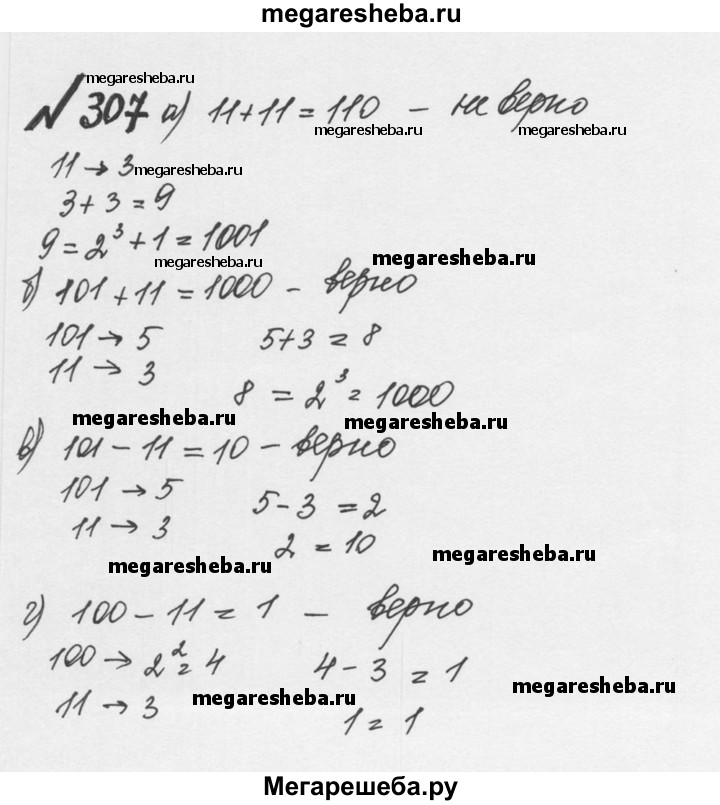 megaresheba.ru
megaresheba.ru
№ 307 а) 11+11=110 – не верно
megaresheba.ru megaresheba.ru
11 → 3 megaresheba.ru
3+3=9
9=2³+1=1001
megaresheba.ru megaresheba.ru
б) 101+11=1000 – верно
101 → 5 5+3=8
11 → 3
8=2³=1000
megaresheba.ru megaresheba.ru
в) 101-11=10 – верно
101 → 5 5-3=2
11 → 3
2=10
megaresheba.ru megaresheba.ru
г) 100-11=1 – верно
100 → 2²=4 4-3=1
megaresheba.ru megaresheba.ru
11 → 3
1=1
Мегарешеба.ру